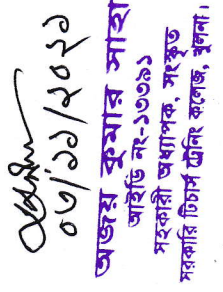 ০৬/১১/২০২১
অজয় কুমার সাহা
আইডি নং-১৩৩৯১
সহকারী অধ্যাপক, সংস্কৃত
সরকারি টিচার্স ট্রেনিং কলেজ, খুলনা।